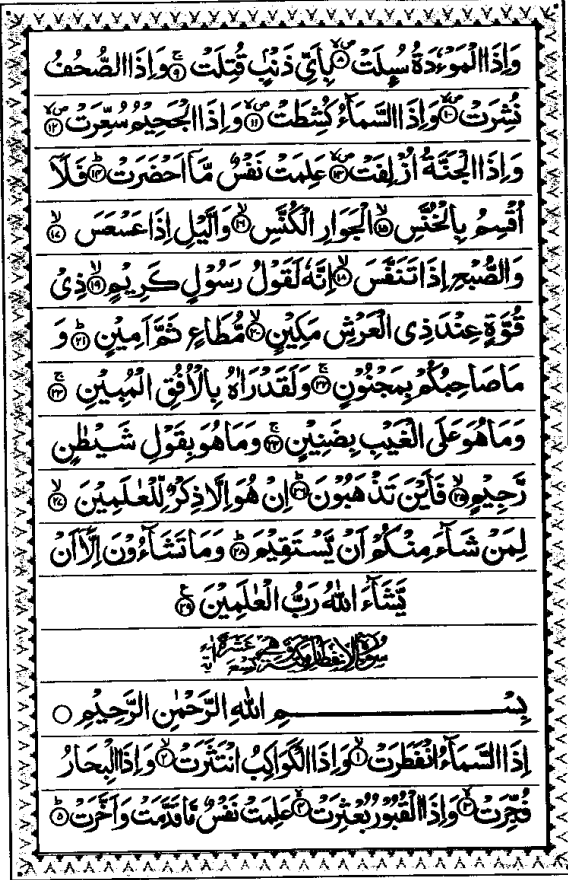 وَاِذَا الْمَوْءٗدَةُ سُىِٕلَتْ ۝۸ بِاَیِّ ذَنْۢبٍ قُتِلَتْ ۝۹ وَاِذَا الصُّحُفُ
نُشِرَتْ ۝۱۰ وَاِذَا السَّمَآءُ كُشِطَتْ ۝۱۱ وَاِذَا الْجَحِیْمُ سُعِّرَتْ ۝۱۲
وَاِذَا الْجَنَّةُ اُزْلِفَتْ ۝۱۳ عَلِمَتْ نَفْسٌ مَّاۤ اَحْضَرَتْ ۝۱۴ فَلَاۤ
اُقْسِمُ بِالْخُنَّسِ ۝۱۵ الْجَوَارِ الْكُنَّسِ ۝۱۶ وَالَّیْلِ اِذَا عَسْعَسَ ۝۱۷
وَالصُّبْحِ اِذَا تَنَفَّسَ ۝۱۸ اِنَّهٗ لَقَوْلُ رَسُوْلٍ كَرِیْمٍ ۝۱۹ ذِیْ
قُوَّةٍ عِنْدَ ذِی الْعَرْشِ مَكِیْنٍ ۝۲۰ مُّطَاعٍ ثَمَّ اَمِیْنٍ ۝۲۱ وَ
مَا صَاحِبُكُمْ بِمَجْنُوْنٍ ۝۲۲ وَلَقَدْ رَاٰهُ بِالْاُفُقِ الْمُبِیْنِ ۝۲۳
وَمَا هُوَ عَلَی الْغَیْبِ بِضَنِیْنٍ ۝۲۴ وَمَا هُوَ بِقَوْلِ شَیْطٰنٍ
رَّجِیْمٍ ۝۲۵ فَاَیْنَ تَذْهَبُوْنَ ۝۲۶ اِنْ هُوَ اِلَّا ذِكْرٌ لِّلْعٰلَمِیْنَ ۝۲۷
لِمَنْ شَآءَ مِنْكُمْ اَنْ یَّسْتَقِیْمَ ۝۲۸ وَمَا تَشَآءُوْنَ اِلَّاۤ اَنْ
یَّشَآءَ اللّٰهُ رَبُّ الْعٰلَمِیْنَ ۝۲۹
سُوْرَةُ الْاِنْفِطَارِ مَكِّیَّةٌ وَّهِیَ تِسْعَ عَشْرَةَ اٰیَةً
بِسْمِ اللّٰهِ الرَّحْمٰنِ الرَّحِیْمِ ۝
اِذَا السَّمَآءُ انْفَطَرَتْ ۝۱ وَاِذَا الْكَوَاكِبُ انْتَثَرَتْ ۝۲ وَاِذَا الْبِحَارُ
فُجِّرَتْ ۝۳ وَاِذَا الْقُبُوْرُ بُعْثِرَتْ ۝۴ عَلِمَتْ نَفْسٌ مَّا قَدَّمَتْ وَاَخَّرَتْ ۝۵